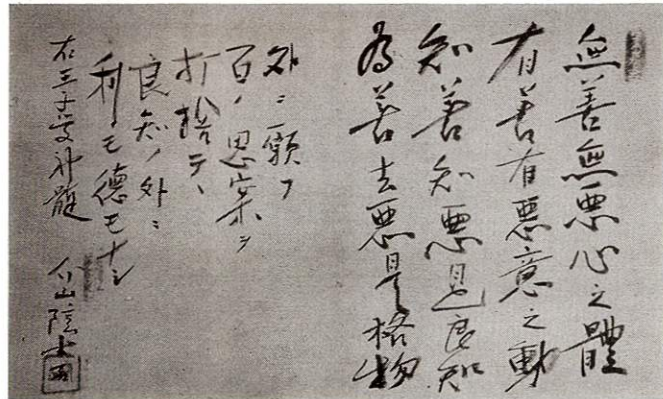 無善無悪心之體
有善有悪意之動
知善知悪是良知
為善去悪是格物
外ニ願フ
百ノ思案ヲ
打捨テヽ
良知ノ外ニ
利モ德モナシ
右王子 神髄